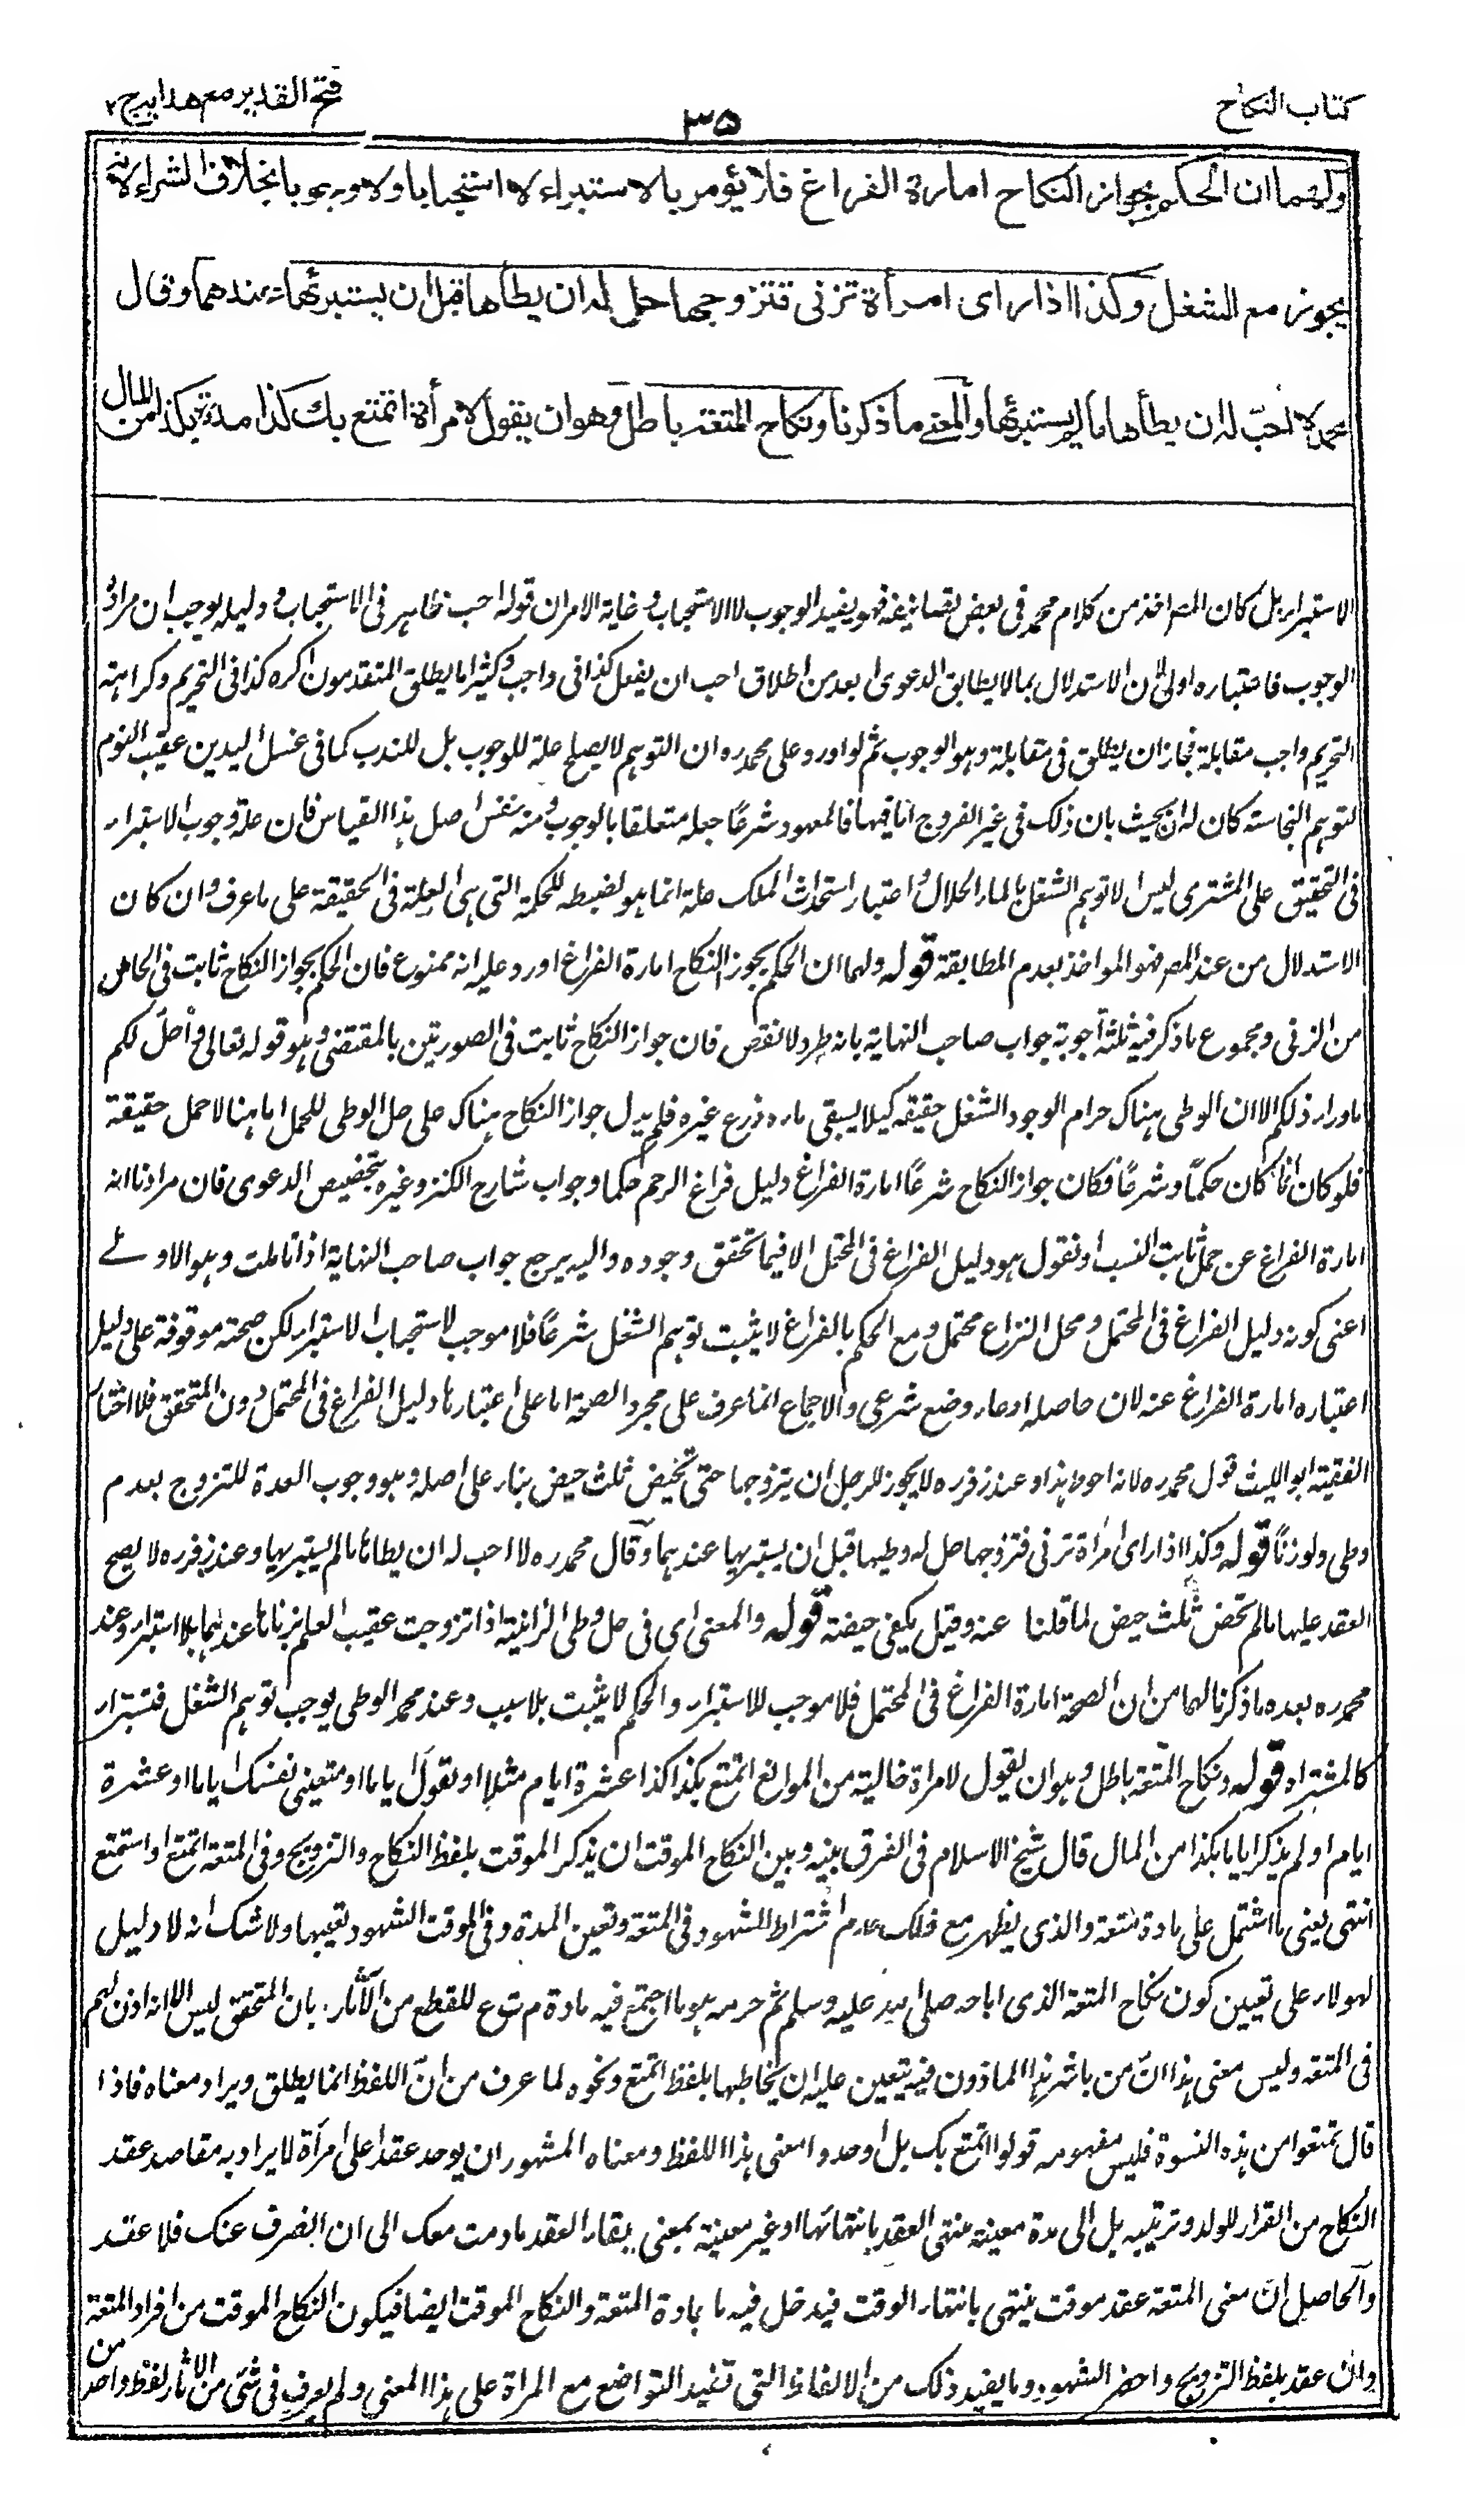 كتاب النكاح
٣٥
فتح القدير مع هدايه ج ٢
ولهما ان الحكم بجواز النكاح امارة الفراغ فلا يؤمر بالاستبراء لا استحبابا ولا وجوبا بخلاف الشراء لانه
يجوز مع الشغل وكذا اذا راى امرأة تزنى فتزوجها حل له ان يطأها قبل ان يستبرئها عندهما وقال
محمد لا احب له ان يطأها ما لم يستبرئها والمعنى ما ذكرنا ونكاح المتعة باطل وهو ان يقول لامرأة اتمتع بك كذا مدة بكذا من المال
الاستبراء بل كان المصر اخذ من كلام محمد فى بعض تصانيفه فهو يفيد الوجوب لا الاستحباب وغاية الامر ان قوله احب ظاهر فى الاستحباب ودليله يوجب ان مراده
الوجوب فاعتباره اولى لان الاستدلال بما لا يطابق الدعوى ابعد من اطلاق احب ان يفعل كذا فى واجب وكثيرا ما يطلق المتقدمون اكره كذا فى التحريم وكراهته
التحريم واجب مقابلة فجاز ان يطلق فى مقابلة وهو الوجوب ثم لو اورد على محمد ره ان التوهم لا يصلح علة للوجوب بل للندب كما فى غسل اليدين عقيب النوم
لتوهم النجاسة كان له ان يجيث بان ذلك فى غير الفروج اما فيها فالمعهود شرعا جعله متعلقا بالوجوب ومنه نفس اصل هذا القياس فان علة وجوب الاستبراء
فى التحقيق على المشترى ليس الا توهم الشغل بالماء الحلال واعتبار استحداث الملك علة انما هو لضبطه للحكمة التى هى العلة فى الحقيقة على ما عرف وان كان
الاستدلال من عند المصر فهو المواخذ بعدم المطابقة قوله ولهما ان الحكم بجواز النكاح امارة الفراغ اورد عليه انه ممنوع فان الحكم بجواز النكاح ثابت فى الحامل
من الزنى ومجموع ما ذكر فيه ثلثة اجوبة جواب صاحب النهاية بانه طرد لا نقض فان جواز النكاح ثابت فى الصورتين بالمقتضى وهو قوله تعالى واحل لكم
ما وراء ذلكم الا ان الوطى هناك حرام لوجود الشغل حقيقة كيلا يسقى ماءه زرع غيره فلم يدل جواز النكاح هناك على حل الوطى للحمل اما هنا لا حمل حقيقة
فلو كان انما كان حكما وشرعا فكان جواز النكاح شرعا امارة الفراغ دليل فراغ الرحم حكما وجواب شارح الكنز وغيره بتخصيص الدعوى فان مرادنا انه
امارة الفراغ عن حمل ثابت النسب او نقول هو دليل الفراغ فى المحتمل الا فيما تحقق وجوده واليه يرجع جواب صاحب النهاية اذا تاملت وهو الاولے
اعنى كونه دليل الفراغ فى المحتمل ومحل النزاع محتمل ومع الحكم بالفراغ لا يثبت توهم الشغل شرعا فلا موجب لاستحباب الاستبراء لكن صحته موقوفة على دليل
اعتباره امارة الفراغ عنه لان حاصله ادعاء وضع شرعى والاجماع انما عرف على مجرد الصحة اما على اعتبارها دليل الفراغ فى المحتمل دون المتحقق فلا اختار
الفقيه ابو الليث قول محمد ره لانه احوط هذا وعند زفر ره لا يجوز للرجل ان يتزوجها حتى تحيض ثلث حيض بناء على اصله وهو وجوب العدة للتزوج بعدم
وطى ولو زنًا قوله وكذا اذا راى امراة تزنى فتزوجها حل له وطيها قبل ان يستبريها عندهما وقال محمد ره لا احب له ان يطاها ما لم يستبريها وعند زفر ره لا يصح
العقد عليها ما لم تحض ثلث حيض لما قلنا عنه وقيل يكفى حيضة قوله والمعنى اى فى حل وطى الزانية اذا تزوجت عقيب العلم بزناها عندهما بلا استبراء وعند
محمد ره بعده ما ذكرنا لهما من ان الصحة امارة الفراغ فى المحتمل فلا موجب للاستبراء والحكم لا يثبت بلا سبب وعند محمد الوطى يوجب توهم الشغل فتستبرا
كالمشتراة قوله ونكاح المتعة باطل وهو ان يقول لامراة خالية من الموانع اتمتع بكذا كذا عشرة ايام مثلا او يقول اياما او متعينى نفسك اياما او عشرة
ايام او لم يذكر اياما بكذا من المال قال شيخ الاسلام فى الفرق بينه وبين النكاح الموقت ان يذكر الموقت بلفظ النكاح والتزويج وفى المتعة اتمتع او استمتع
انتهى يعنى ما اشتمل على مادة متعة والذى يظهر مع ذلك عدم اشتراط الشهود فى المتعة وتعيين المدة وفى الموقت الشهود وتعيينها ولا شك انه لا دليل
لهولاء على تعيين كون نكاح المتعة الذى اباحه صلى الله عليه وسلم ثم حرمه هو ما اجتمع فيه مادة م ت ع للقطع من الآثار بان المتحقق ليس الا انه اذن لهم
فى المتعة وليس معنى هذا ان من باشر هذا الماذون فيه يتعين عليه ان يخاطبها بلفظ اتمتع ونحوه لما عرف من ان اللفظ انما يطلق ويراد معناه فاذا
قال تمتعوا من هذه النسوة فليس مفهومه قولوا اتمتع بك بل اوجدوا معنى هذا اللفظ ومعناه المشهور ان يوجد عقدا على امرأة لا يراد به مقاصد عقد
النكاح من القرار للولد وتربيته بل الى مدة معينة ينتهى العقد بانتهائها او غير معينة بمعنى بقاء العقد ما دمت معك الى ان انصرف عنك فلا عقد
والحاصل ان معنى المتعة عقد موقت ينتهى بانتهاء الوقت فيدخل فيه ما بمادة المتعة والنكاح الموقت ايضا فيكون النكاح الموقت من افراد المتعة
وان عقد بلفظ التزويج واحضر الشهود وما يفيد ذلك من الالفاظ التى تفيد التواضع مع المراة على هذا المعنى ولم يعرف فى شئ من الاثار لفظ واحد من